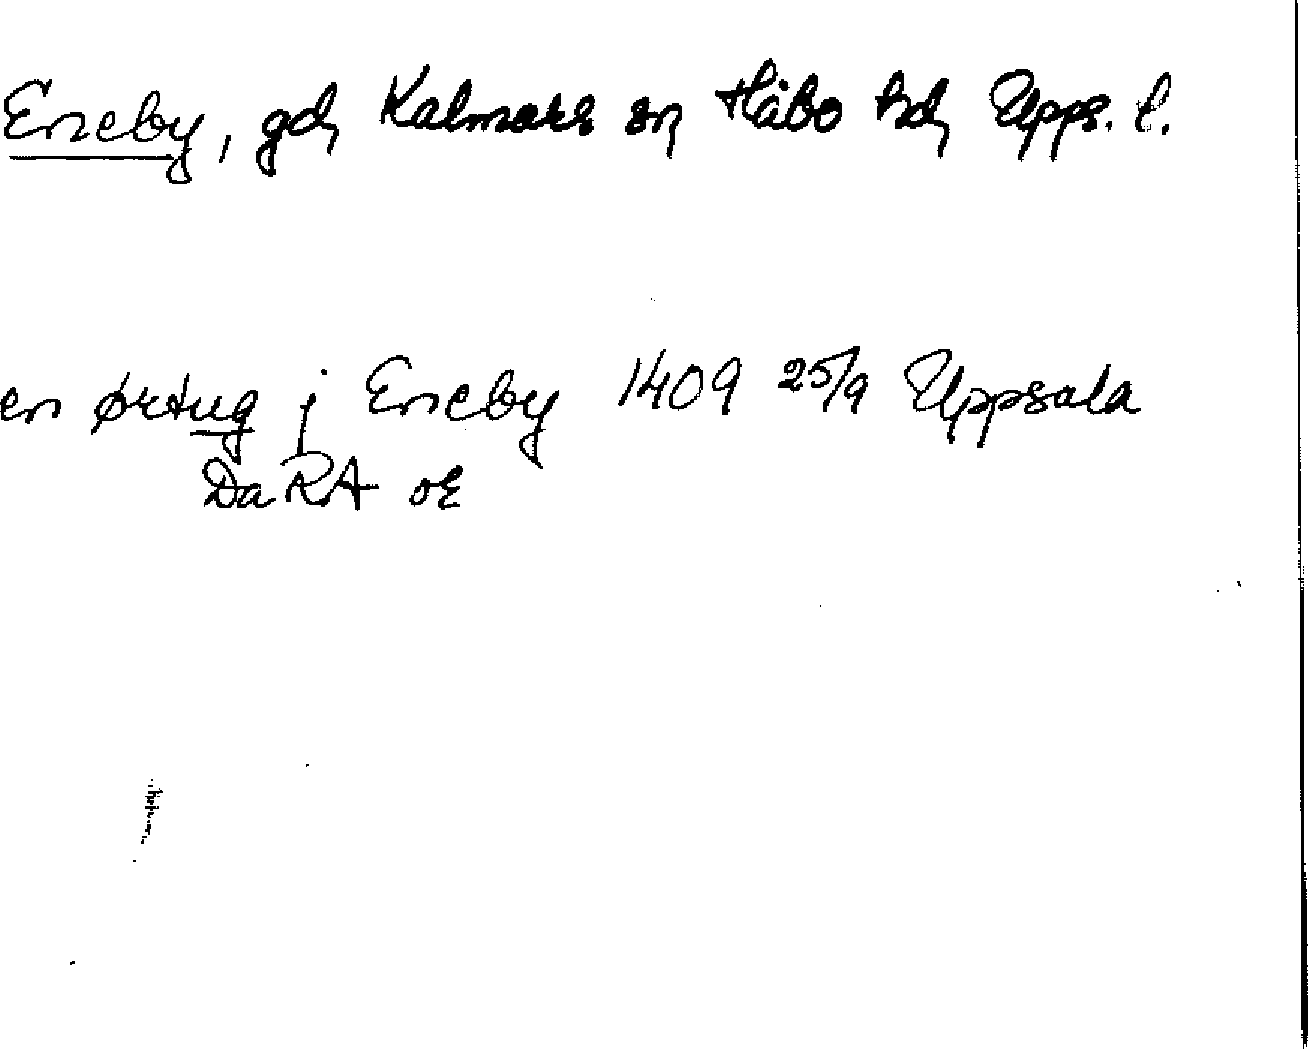 Eneby, gd, Kalmars sn, Håbo hd, Upps. l.
en ørtug j Eneby 1409 25/9 Uppsala
DaRA or